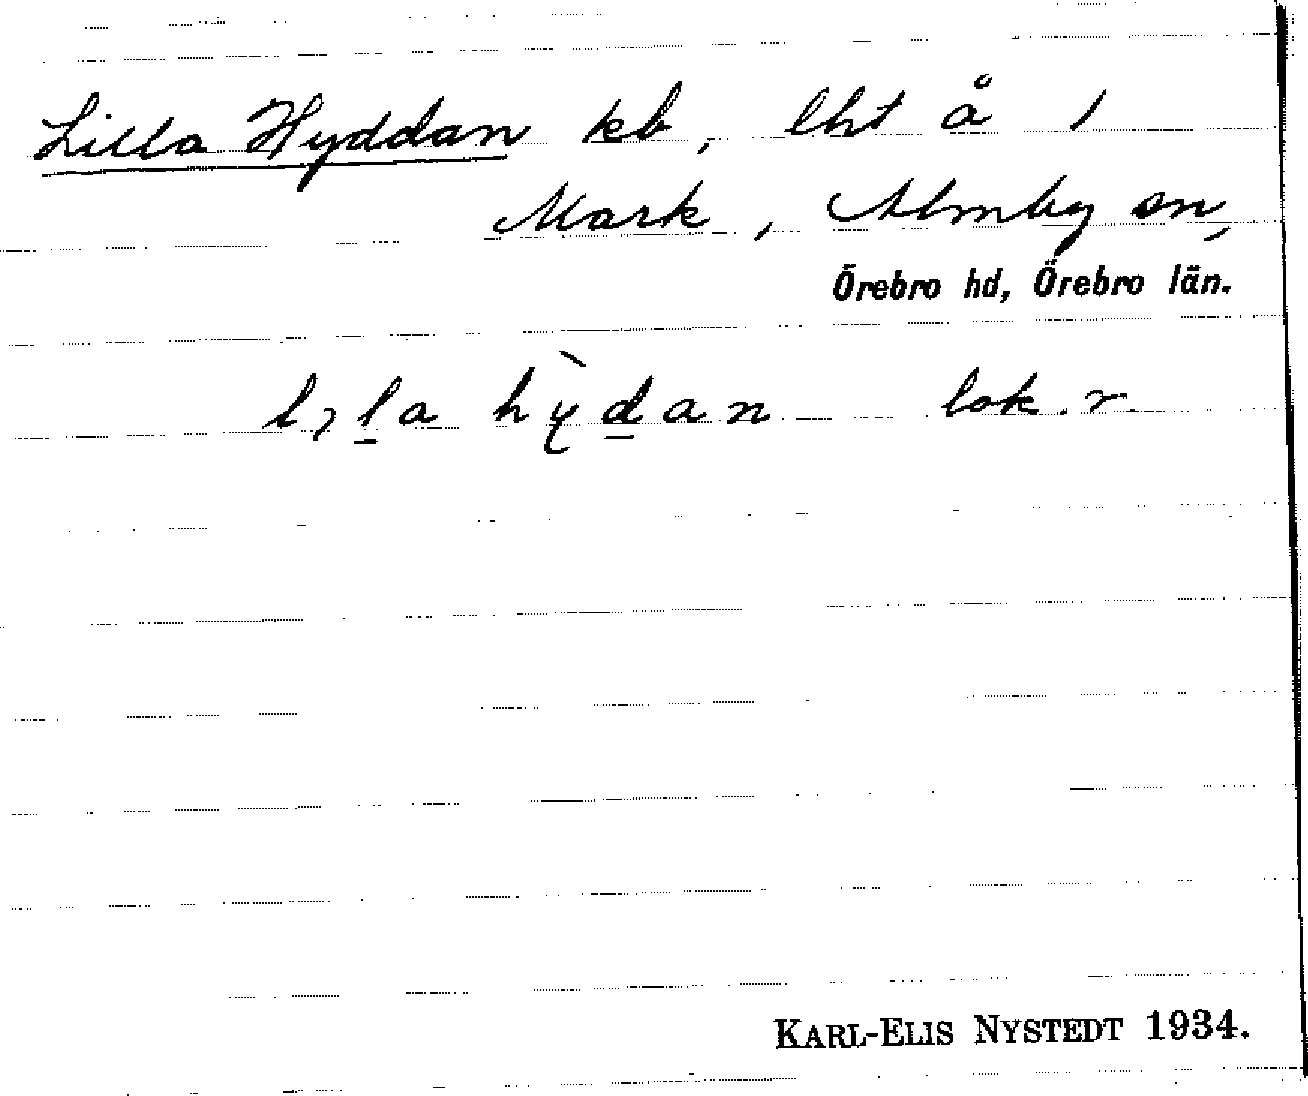 Lilla Hyddan kb, lht å 1
Mark, Almby sn,
Örebro hd, Örebro län.
hỳdan lok. r.
KARL-ELIS NYSTEDT 1934.